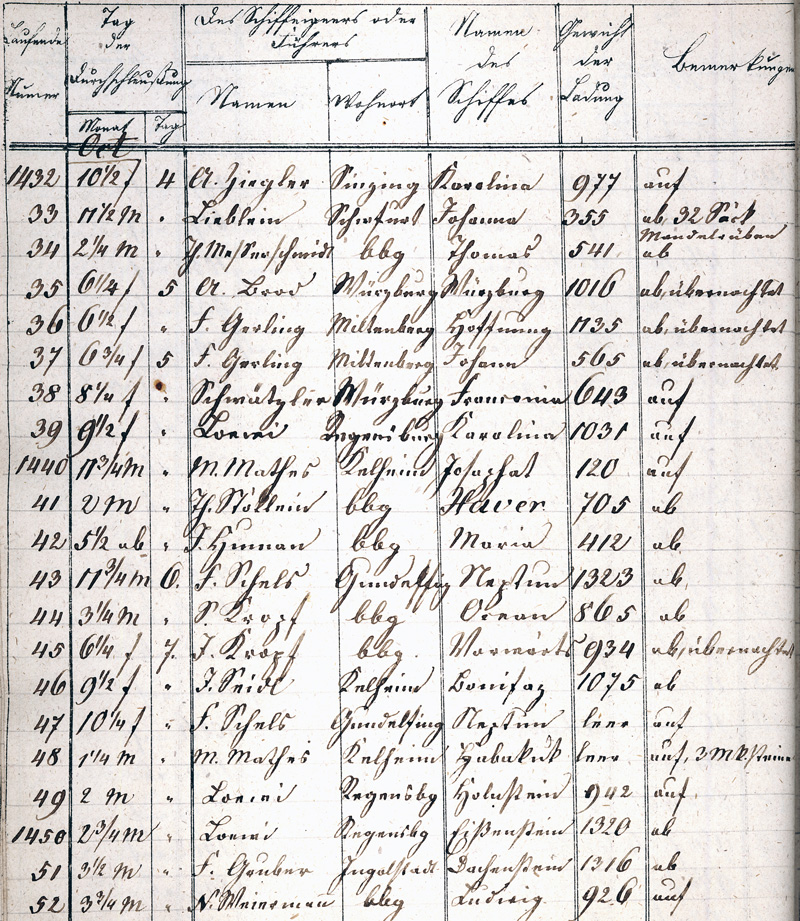 Laufende Numer
Tag der Durchschleußung
Monat Tag
des Schiffeigners oder Führers
Namen Wohnort
Namen des Schiffes
Gewicht der Ladung
Bemerkungen
Oct
1432 10½ f 4 A. Ziegler Sinzing Karolina 977 auf
33 11½ M " Lieblein Schwfurt Johanna 355 ab, 32 Säck
Mandelrüben
34 2¼ M " Messerschmidt bbg Thomas 541 ab
35 6¼ f 5 A. Brod Würzburg Würzburg 1016 ab, übernachtet
36 6½ f " F. Gerling Miltenberg Hoffnung 1135 ab, übernachtet
37 6¾ f 5 F. Gerling Miltenberg Johann 565 ab, übernachtet.
38 8¼ f " Schwätzler Würzburg Franconia 643 auf
39 9½ f " Loewi Regensburg Karolina 1031 auf
1440 11¾ M " M. Mathes Kelheim Josaphat 120 auf
41 2 M " Stöllein bbg Xaver 705 ab
42 5½ ab " bbg Maria 412 ab
43 11¾ M 6. F. Schels Gundelfig Neptun 1323 ab
44 3¼ M " S. Kropf bbg Ocean 865 ab
45 6¼ f 7. J. Kropf bbg. Vorwärts 934 ab, übernachtet
46 9½ f " J. Seidl Kelheim Bonifaz 1075 ab
47 10¼ f " F. Schels Gundelfing Neptun leer auf
48 1¼ M " M. Mathes Kelheim Habakuk leer auf, 3 M
49 2 M " Loewi Regensbg Holnstein 942 auf
1450 2¾ M " Loewi Regensbg Eißenstein 1320 ab
51 3½ M " F. Gruber Ingolstadt Dachenstein 1316 ab
52 3¾ M " N. Weierman bbg Ludwig 926 auf